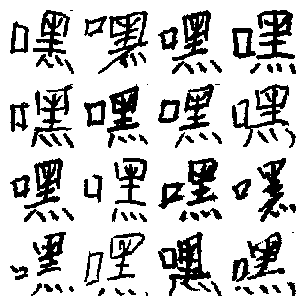 嘿嘿嘿嘿
嘿嘿嘿嘿
嘿嘿嘿嘿
嘿嘿嘿嘿